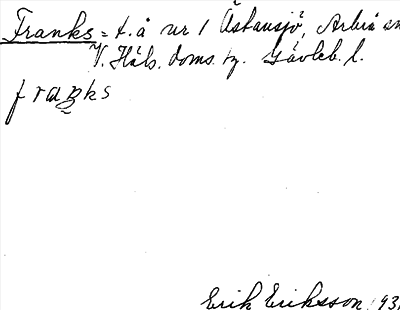 Franks = t. å nr 1 Östansjö, Arbrå sn
V. Häls. doms. tg. Gävleb. l.
franks
Erik Eriksson 193